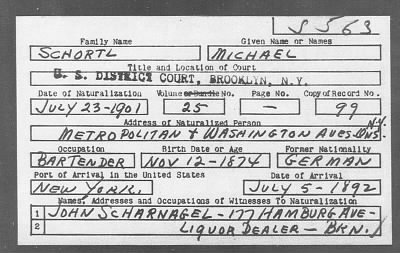 S 563
Family Name Given Name or Names
SCHORTL MICHAEL
Title and Location of Court
U. S. DISTRICT COURT, BROOKLYN, N.Y.
Date of Naturalization Volume or Bundle No. Page No. Copy of Record No.
JULY 23-1901 25 — 99
Address of Naturalized Person N.Y.
METROPOLITAN & WASHINGTON AVES-WNS.
Occupation Birth Date or Age Former Nationality
BARTENDER NOV 12-1874 GERMAN
Port of Arrival in the United States Date of Arrival
NEW YORK. JULY 5-1892
Names, Addresses and Occupations of Witnesses To Naturalization
1 JOHN SCHARNAGEL-177 HAMBURG AVE-
2 LIQUOR DEALER — BKN.